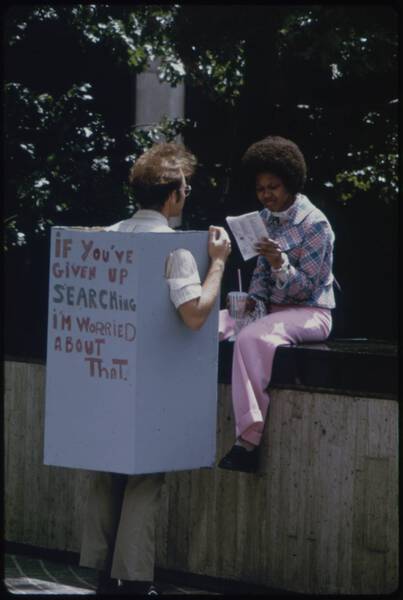 iF YOU'VE
GiVEN UP
SEARCHiNG
i'M WORRiED
ABOUT
THAT.